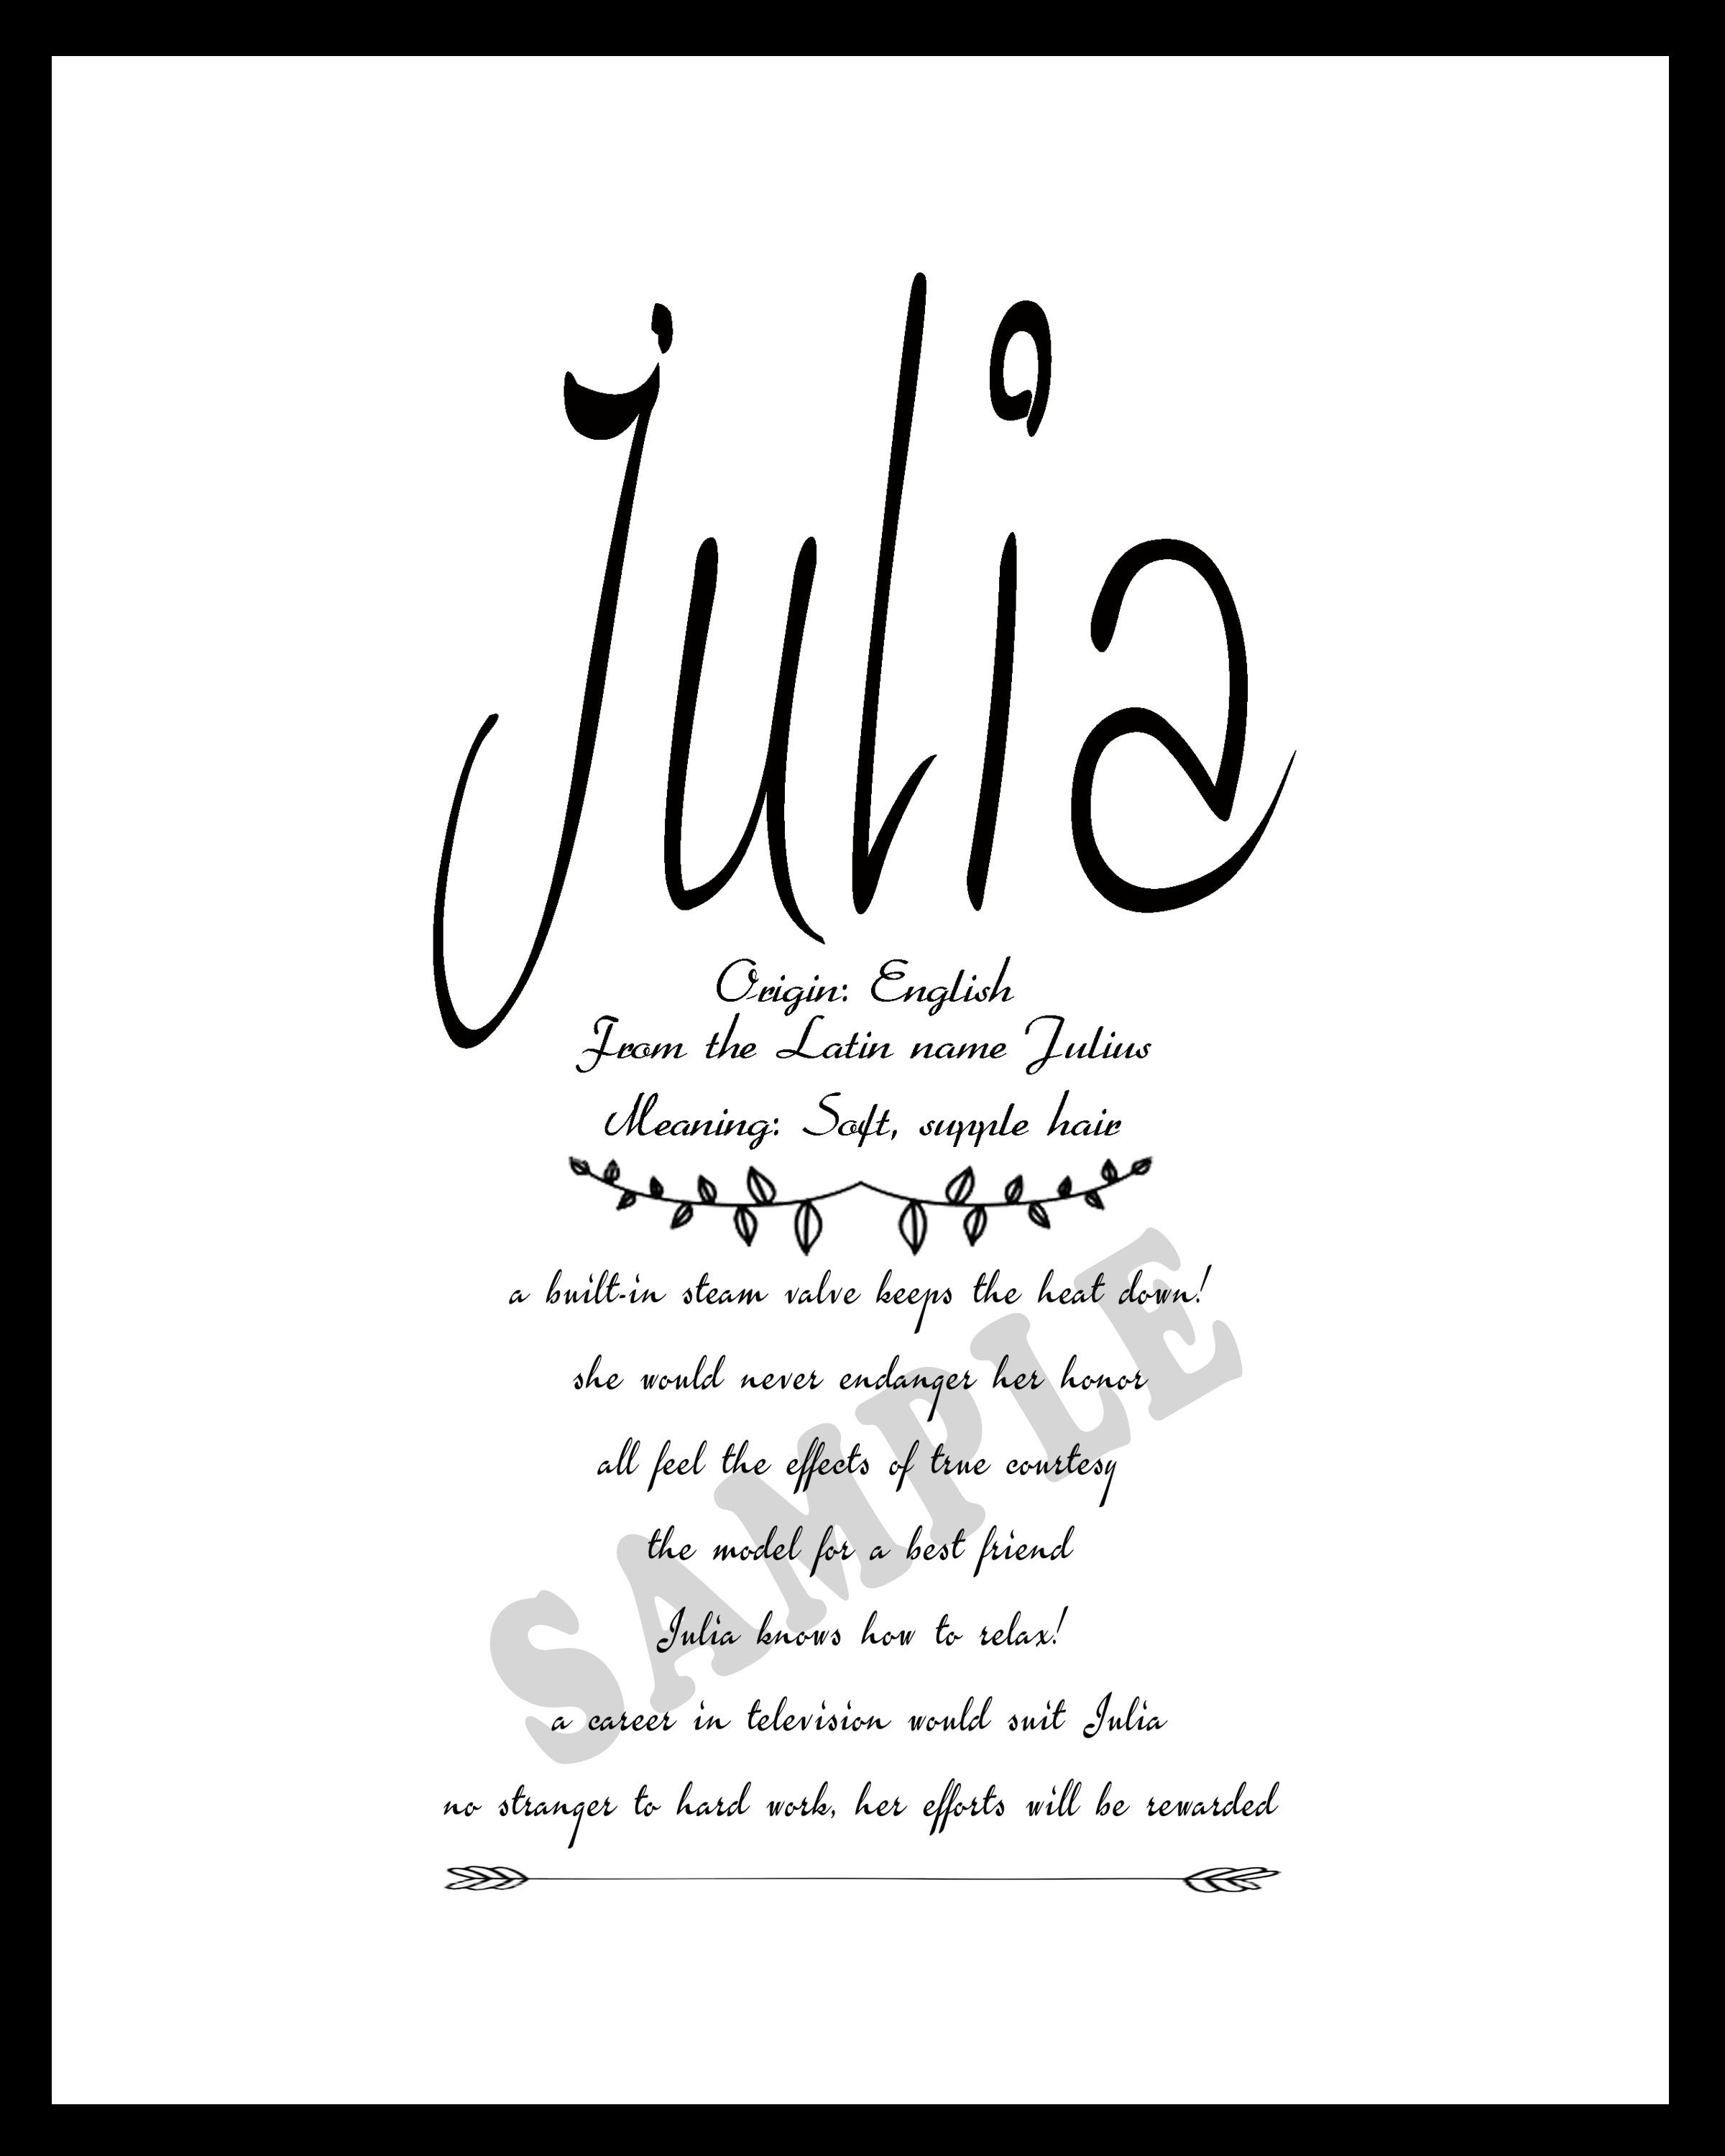 Julia
Origin: English
From the Latin name Julius
Meaning: Soft, supple hair
a built-in steam valve keeps the heat down!
she would never endanger her honor
all feel the effects of true courtesy
the model for a best friend
Julia knows how to relax!
a career in television would suit Julia
no stranger to hard work, her efforts will be rewarded
SAMPLE